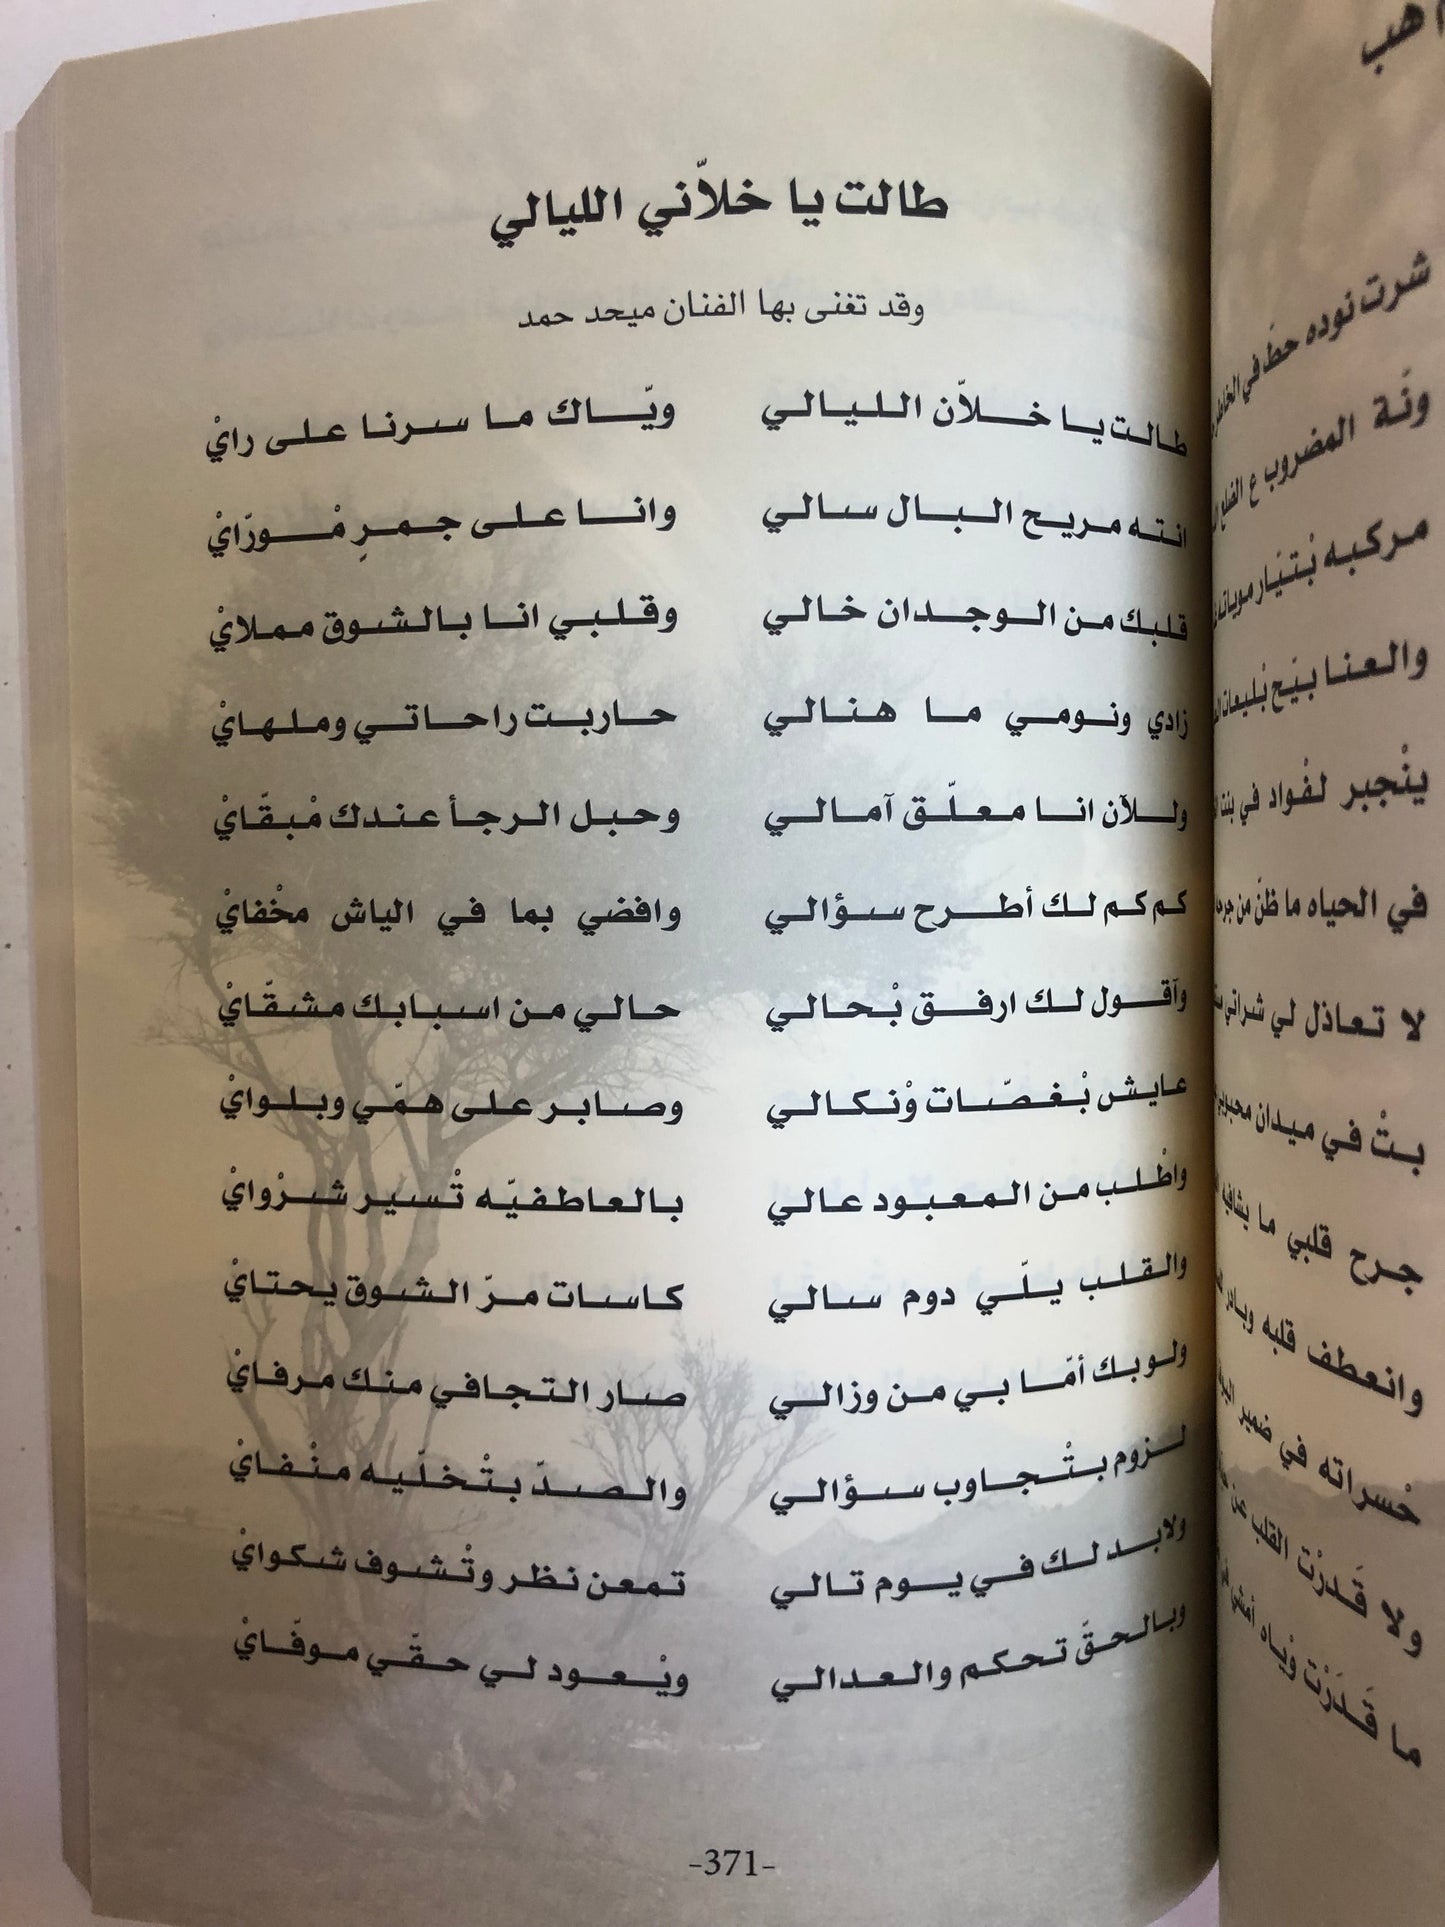 طالت يا خلاّني الليالي
وقد تغنى بها الفنان ميحد حمد
طالت يا خلاّن الليالي ويّاك ما سرنا على رايْ
انته مريح البال سالي وانا على جمرٍ مْورّايْ
قلبك من الوجدان خالي وقلبي انا بالشوق مملايْ
زادي ونومي ما هنالي حاربت راحاتي وملهايْ
وللآن انا معلّق آمالي وحبل الرجأ عندك مْبقّايْ
كم كم لك أطرح سؤالي وافضي بما في الياش مخْفايْ
وآقول لك ارفق بْحالي حالي من اسبابك مشقّايْ
عايش بْغصّات وْنكالي وصابر على همّي وبلوايْ
واطْلب من المعبود عالي بالعاطفيّه تْسير شرْوايْ
والقلب يلّي دوم سالي كاسات مرّ الشوق يحتايْ
ولوبك أمّا بي من وزالي صار التجافي منك مرفايْ
لزوم بتْجاوب سؤالي والصدّ بتْخلّيه منْفايْ
ولابد لك في يوم تالي تمعن نظر وتْشوف شكوايْ
وبالحقّ تحكم والعدالي ويْعود لي حقّي موفّايْ
-371-
شرت نوده حطّ في
ونّة المضروب ع الضلع
مركبه بْتيّار
والعنا بيّح بْليعات
ينْجبر لفْواد في بنت
في الحياه ما ظنّ من
لا تعاذل لي شراني
بتْ في ميدان
جرح قلبي ما يشافيه
وانعطف قلبه
حْسراته في ضمير
ولا قَدرْت القلب عن
ما قَدَرْت وياه أمشي